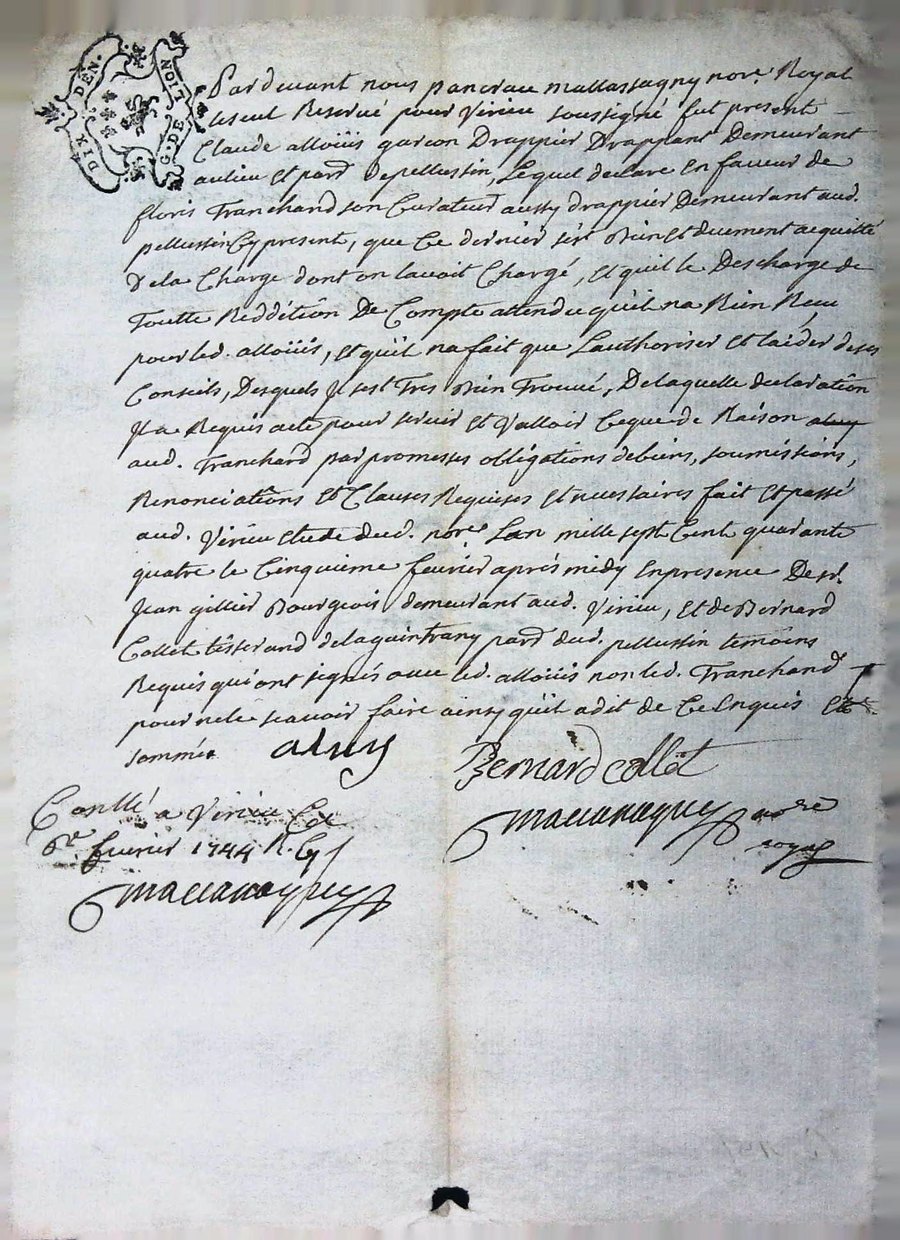 DIX DEN.
G. DE LION
Pardevant nous pancrau mallassagny nore. Royal
et seul Reservé pour Virieu soussigné fut present
Claude alloüis garcon Drappier Drappant Demeurant
aulieu et parr. Depellussin, Lequel declare En faveur de
floris Tranchand son Curateur aussy drappier Demeurant aud.
pellussin Cy present, que Ce dernier sest Bien et duement acquitté
Dela Charge dont on lavoit Chargé, et quil le Descharge de
Toutte Redditiôn De Compte attendu quil na Rien Reçu
pour led. alloüis, et quil na fait que Lauthoriser et laider deses
Conseils, Desquels Jl sest Tres Bien Trouvé, De laquelle declaratiôn
Jl a Requis acte pour servir et Valloir Ceque de Raison
aud. Tranchard par promesses obligations debiens, soumissiôns,
Renonciatiôns et Clauses Requises et necessaires fait et passé
aud. Virieu etude dud. nore. Lan mille sept Cent quarante
quatre le Cinquieme fevrier apres midy En presence De sr.
Jean gillier Bourgeois demeurant aud. Virieu, et de Bernard
Collet tisserand de la parr. dud. pellussin temoins
Requis qui ont signés avec led. alloüis non led. Tranchand
pour ne le scavoir faire ainsy quil a dit de Ce Enquis et
sommé. aluys
Bernard collet
Conllé a Virieu Le
6e. fevrier 1744 R.
nore
royal